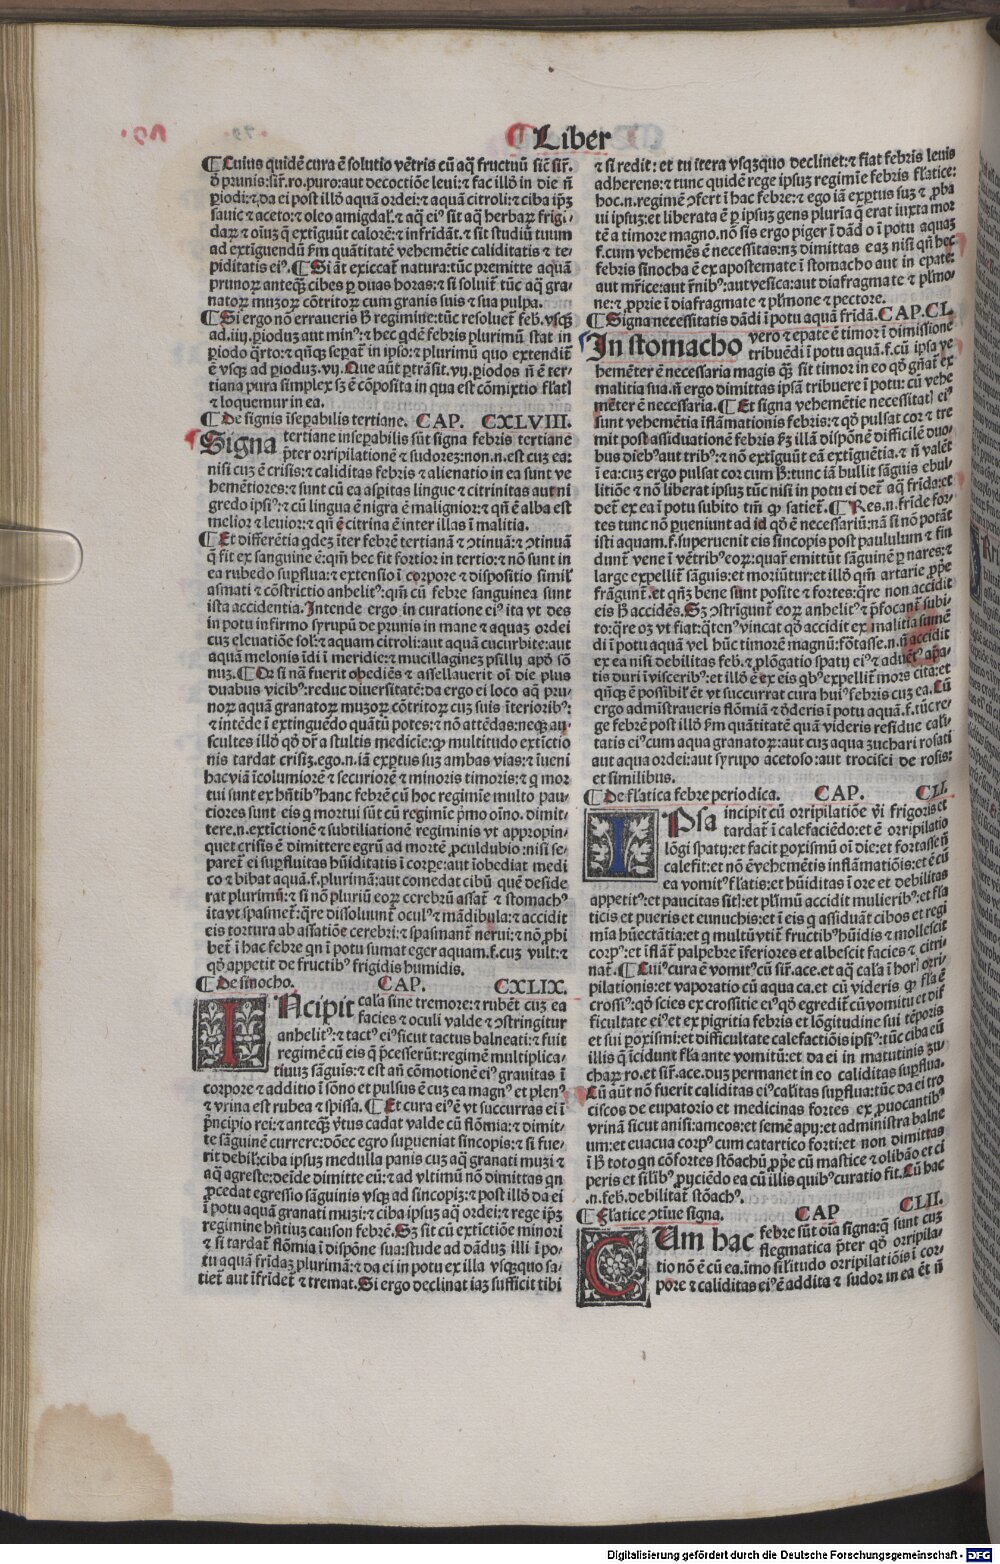 Liber
¶ Cuius quidē cura ē solutio vētris cū aq̄ fructuū sic̄ sir̄.
ō prunis: sir̄. ro. puro: aut decoctiōe leui: ⁊ fac illō in die n̄
ꝑiodi: ⁊ da ei post illō aquā ordei: ⁊ aquā citroli: ⁊ ciba ip̄ȝ
sauic ⁊ aceto: ⁊ oleo amigdal. ⁊ aq̄ eiꝰ sit aq̄ herbaꝝ frigi-
daꝝ ⁊ oīuȝ q̄ extīguūt calorē: ⁊ infrīdāt. ⁊ sit studiū tuum
ad extīguendū ẜm quātitatē vehemētie caliditatis ⁊ te-
piditatis eiꝰ. ¶ Si āt exiccat̄ natura: tūc premitte aquā
prunoꝝ anteq̄ȝ cibes ꝑ duas horas: ⁊ si soluit̄ tūc aq̄ gra-
natoꝝ muzoꝝ cōtritoꝝ cum granis suis ⁊ sua pulpa.
¶ Si ergo nō erraueris ī regimine: tūc resoluet̄ feb. vsq̄ȝ
ad .iiij. ꝑioduȝ aut minꝰ: ⁊ hec qdē febris plurimū stat in
ꝑiodo q̄rto: ⁊ qn̄q̄ȝ seꝑat̄ in ipso: ⁊ plurimū quo extendit̄
ē vsq̄ȝ ad ꝑioduȝ .vij. Que aūt ꝑtrāsit .vij. ꝑiodos n̄ ē ter-
tiana pura simplex sȝ ē cōposita in qua est cōmixtio flatī
⁊ loquemur in ea.
¶ De signis īseꝑabilis tertiane. CAP. CXLVIII.
Signa tertiane inseꝑabilis sūt signa febris tertiane
p̄ter orripilationē ⁊ sudoreȝ: non .n. est cuȝ ea:
nisi cuȝ ē crisis: ⁊ caliditas febris ⁊ alienatio in ea sunt ve
hemētiores: ⁊ sunt cū ea aspitas lingue ⁊ citrinitas aut ni
gredo ipsiꝰ: ⁊ cū lingua ē nigra ē malignior: ⁊ qn̄ ē alba est
melior ⁊ leuior: ⁊ qn̄ ē citrina ē inter illas ī malitia.
¶ Et differētia qdeȝ īter febrē tertianā ⁊ ↄtinuā: ⁊ ↄtinuā
q̄ fit ex sanguine ē: qm̄ hec fit fortior in tertio: ⁊ nō sunt in
ea rubedo suꝑflua: ⁊ extensio ī corpore ⁊ dispositio simil'
asmati ⁊ cōstrictio anhelitꝰ: qm̄ cū febre sanguinea sunt
ista accidentia. Intende ergo in curatione eiꝰ ita vt des
in potu infirmo syrupū de prunis in mane ⁊ aquaȝ ordei
cuȝ eleuatiōe sol: ⁊ aquam citroli: aut aquā cucurbite: aut
aquā melonis īdi ī meridie: ⁊ mucillagineȝ psilly apd̄ sō
nuȝ. ¶ Or si nā fuerit obediēs ⁊ assellauerit oī die plus
duabus vicibꝰ: reduc diuersitatē: da ergo ei loco aq̄ pru-
noꝝ aquā granatoꝝ muzoꝝ cōtritoꝝ cuȝ suis īterioribꝰ:
⁊ intēde ī extinguēdo quātū potes: ⁊ nō attēdas: neqȝ au-
scultes illō qd̄ dr̄ a stultis medicīe: qꝫ multitudo extīctio
nis tardat crisiȝ. ego .n. iā exꝑtus suȝ ambas vias: ⁊ īueni
hac viā īcolumiorē ⁊ securiorē ⁊ minoris timoris: ⁊ q mor
tui sunt ex hn̄tibꝰ hanc febrē cū hoc regimīe multo pau-
ciores sunt eis q mortui sūt cū regimīe p̄mo oīno. dimit-
tere .n. extīctionē ⁊ subtiliationē regiminis vt appropin-
quet crisis ē dimittere egrū ad mortē ꝓculdubio: nisi se-
paret̄ ei suꝑfluitas hūiditatis ī corꝑe: aut īobediat medi
co ⁊ bibat aquā .f. plurimā: aut comedat cibū quē deside
rat plurimū: ⁊ si nō pluriū eoꝝ cerebrū assat̄ ⁊ stomachꝰ
ita vt spasmet̄: q̄re dissoluunt̄ oculꝰ ⁊ mādibula: ⁊ accidit
eis tortura ab assatiōe cerebri: ⁊ spasmant̄ nerui: ⁊ nō ꝓhi
bet̄ ī hac febre qn ī potu sumat eger aquam .f. cuȝ vult: ⁊
qd̄ appetit de fructibꝰ frigidis humidis.
¶ De sinocho. CAP. CXLIX.
INcipit cala sine tremore: ⁊ rubēt cuȝ ea
facies ⁊ oculi valde ⁊ ↄstringitur
anhelitꝰ: ⁊ tactꝰ eiꝰ sicut tactus balneati: ⁊ fuit
regimē cū eis q p̄cesserūt: regimē multiplica-
tiuuȝ sāguis: ⁊ est an̄ cōmotionē eiꝰ grauitas ī
corpore ⁊ additio ī sōno et pulsus ē cuȝ ea magnꝰ et plenꝰ
⁊ vrina est rubea ⁊ spissa. ¶ Et cura eiꝰ ē vt succurras ei ī
p̄ncipio rei: ⁊ anteq̄ȝ v̄tus cadat valde cū flōmia: ⁊ dimit-
te sāguinē currere: dōec egro suꝑueniat sincopis: ⁊ si fue-
rit debil': ciba ipsuȝ medulla panis cuȝ aq̄ granati muzi ⁊
aq̄ agreste: deīde dimitte eū: ⁊ ad vltimū nō dimittas qn
ꝓcedat egressio sāguinis vsqȝ ad sincopiȝ: ⁊ post illō da ei
ī potu aquā granati muzi: ⁊ ciba ipsuȝ aq̄ ordei: ⁊ rege ip̄ȝ
regimine hn̄tius causon febrē. Sȝ sit cū extīctiōe minori
⁊ si tardat̄ flōmia ī dispōne sua: stude ad dāduȝ illi ī po-
tu aquā frīdaȝ plurimā: ⁊ da ei in potu ex illa vsqȝquo sa-
tiet̄ aut īfrīdet̄ ⁊ tremat. Si ergo declinat iaȝ sufficit tibi
⁊ si redit: et tu itera vsqȝquo declinet: ⁊ fiat febris leuis
adherens: ⁊ tunc quidē rege ipsuȝ regimīe febris flatice:
hoc .n. regimē ↄfert ī hac febre: ⁊ ego iā exꝑtus suȝ ⁊ ꝓba
ui ipsuȝ: et liberata ē ꝑ ipsuȝ gens pluria q̄ erat iuxta mor
tē a timore magno. nō sis ergo piger ī dād o ī potu aquaȝ
.f. cum vehemēs ē necessitas: nȝ dimittas eaȝ nisi qn̄ hec
febris sinocha ē ex apostemate ī stomacho aut in epate:
aut mr̄ice: aut rn̄ibꝰ: aut vesica: aut diafragmate ⁊ pl̄mo-
ne: ⁊ ꝓprie ī diafragmate ⁊ pl̄mone ⁊ pectore.
¶ Signa necessitatis dādi ī potu aquā frīdā. CAP. CL.
In stomacho vero ⁊ epate ē timor ī dimissione
tribuēdi ī potu aquā .f. cū ipsa ve
hemēter ē necessaria magis q̄ȝ sit timor in eo qd̄ gn̄at̄ ex
malitia sua. n̄ ergo dimittas ipsā tribuere ī potu: cū vehe
mēter ē necessaria. ¶ Et signa vehemētie necessitatī eiꝰ
sunt vehemētia īflāmationis febris: ⁊ qd̄ pulsat cor ⁊ tre
mit post assiduationē febris ẜȝ illā dispōnē difficilē duo-
bus diebꝰ aut tribꝰ: ⁊ nō extīguūt eā extīguētia. ⁊ n̄ valēt
ī ea: cuȝ ergo pulsat cor cum ī: tunc iā bullit sāguis ebul-
litiōe ⁊ nō liberat ipsuȝ tūc nisi in potu ei det̄ aq̄ frīda: et
det̄ ex ea ī potu subito tm̄ qꝫ satiet̄. ¶ Res .n. frīde for-
tes tunc nō ꝑueniunt ad id qd̄ ē necessariū: nā si nō potāt̄
isti aquam .f. superuenit eis sincopis post paululum ⁊ fin
dunt̄ vene ī vētribꝰ eoꝝ: quaꝝ emittūt sāguinē ꝑ nares: ⁊
large expellit̄ sāguis: et moriūtur: et illō qm̄ artarie ꝓp̄e
frāgunt̄. et qn̄ȝ bene sunt posite ⁊ fortes: q̄re non accidit
eis ī accidēs. Sȝ ↄstrīgunt̄ eoꝝ anhelitꝰ ⁊ p̄focant̄ subi-
to: q̄re oȝ vt fiat: q̄tenꝰ vincat qd̄ accidit ex malitia sumē
di ī potu aquā vel hūc timorē magnū: fōtasse .n. n̄ accidit
ex ea nisi debilitas feb. ⁊ ꝓlōgatio spatij eiꝰ ⁊ aduēt̄ aꝑa-
tis duri ī visceribꝰ: et illō ē ex eis qbꝰ expellit̄ mors cita: et
qn̄qȝ ē possibil' ē vt succurrat cura huiꝰ febris cuȝ ea. Cū
ergo admīstraueris flōmiā ⁊ dederis ī potu aquā .f. tūc re-
ge febrē post illō ẜm quātitatē quā videris residue cali-
tatis eiꝰ cum aqua granatoꝝ: aut cuȝ aqua zuchari rosati
aut aqua ordei: aut syrupo acetoso: aut trocisci de rosis:
et similibus.
¶ De flatica febre periodica. CAP. CLI.
IPsa incipit cū orripilatiōe v̄l frigoris et
tardat̄ ī calefaciēdo: et ē orripilatio
lōgi spatij: et facit ꝑoxismū oī die: et fortasse n̄
calefit: et nō ē vehemētis inflāmatiōis: et ē cū
ea vomitꝰ flatis: et hūiditas ī ore et debilitas
appetitꝰ: et paucitas sitꝰ: et pl̄imū accidit mulieribꝰ: et fla
ticis et pueris et eunuchis: et ī eis q assiduāt cibos et regi
mīa hūectātia: et q multū vtūt̄ fructibꝰ hūidis ⁊ mollescit
corpꝰ: et īflāt̄ palpebre īferiores et albescit facies ⁊ citri
nat̄. ¶ Cuiꝰ cura ē vomitꝰ cū sir̄. ace. et aq̄ cal'a ī hori orri-
pilationis: et vaporatio cū aqua ca. et cū videris qꝫ fla ē
crossiꝰ: qd̄ scies ex crossitie eiꝰ qd̄ egredit̄ cū vomitu et dif
ficultate eiꝰ et ex pigritia febris et lōgitudine sui tēporis
et sui ꝑoxismi: et difficultate calefactiōis ipsiꝰ: tūc ciba eū
illis q īcidunt fl'a ante vomitū: et da ei in matutinis zu
charꝝ ro. et sir̄. ace. duȝ permanet in eo caliditas suꝑflua.
Cū aūt nō fuerit caliditas eiꝰ calitas suꝑflua: tūc da ei tro
ciscos de eupatorio et medicinas fortes ex ꝓuocantibꝰ
vrinā sicut anisi: ameos: et semē apij: et administra balne
um: et euacua corpꝰ cum catartico forti: et non dimittas
ī ī toto qn cōfortes stōachū ꝓp̄e cū mastice ⁊ olibāo et ci
peris et silibꝰ ꝓijciēdo ea cū illis quibꝰ curatio fit. Cū hac
.n. feb. debilitat̄ stōachꝰ.
¶ Flatice ↄtīue signa. CAP CLII.
CUm hac febre sūt oīa signa: q̄ sunt cuȝ
flegmatica p̄ter qd̄ orripila-
tio nō ē cū ea. īmo sīlitudo orripilatiōis ī cor-
pore ⁊ caliditas eiꝰ ē addita ⁊ sudor in ea ēt n̄
Digitalisierung gefördert durch die Deutsche Forschungsgemeinschaft - DFG